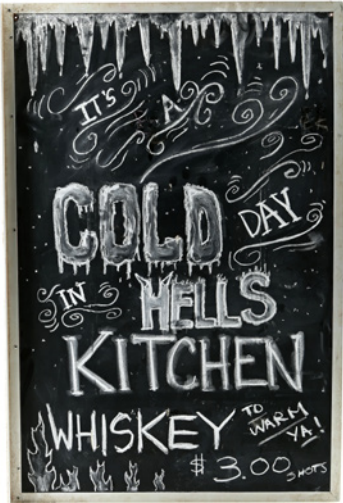 IT'S A
COLD DAY
IN HELLS
KITCHEN
WHISKEY TO WARM YA!
$3.00 SHOTS